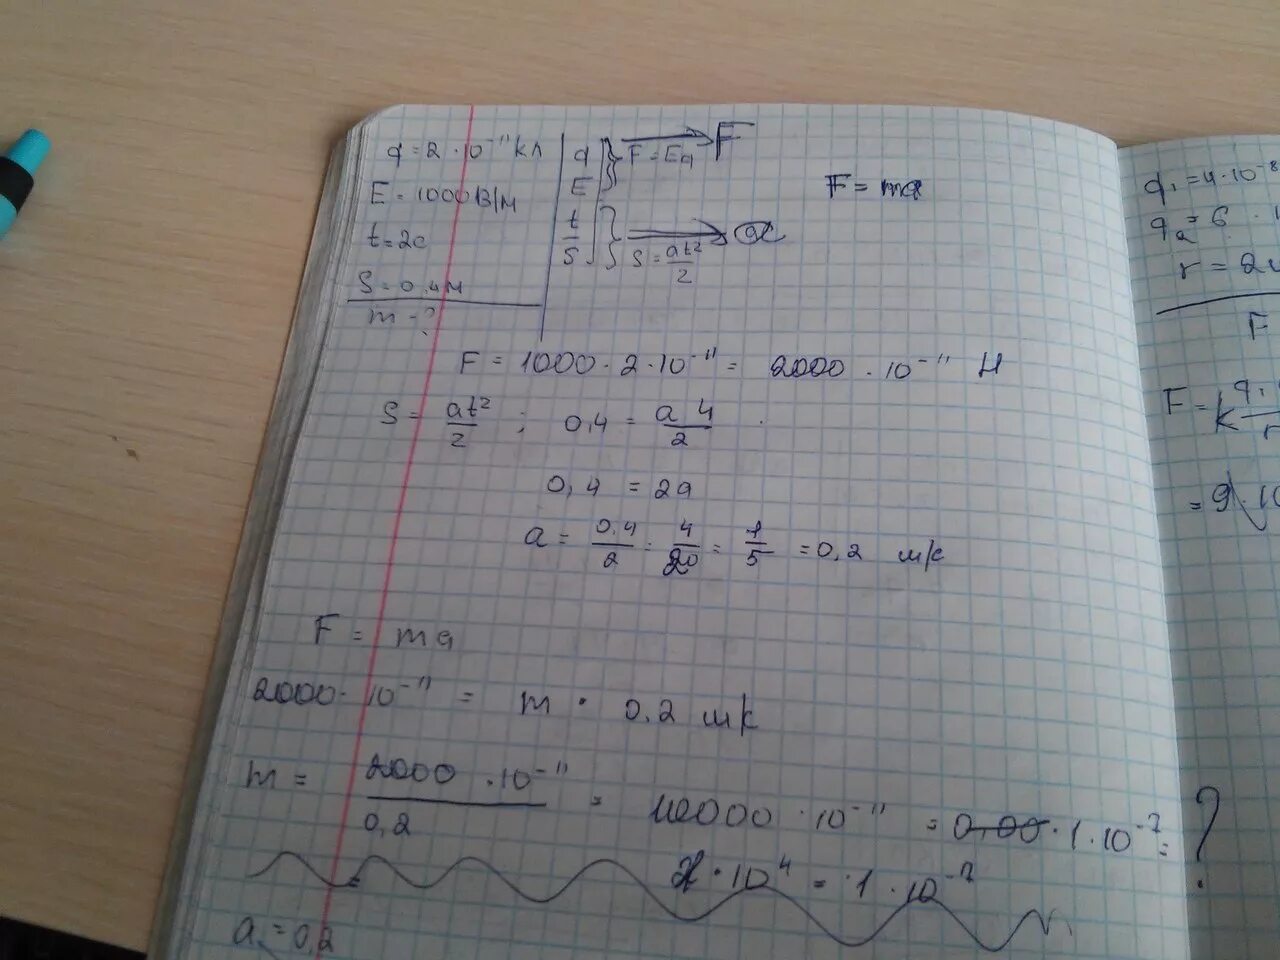 q = 2 · 10⁻¹¹ кл
E = 1000 В/м
t = 2с
S = 0,4м
m - ?
q
E
F = Eq
F
t
S
S = at²/2
F = ma
F = 1000 · 2 · 10⁻¹¹ = 2000 · 10⁻¹¹ Н
S = at²/2 ; 0,4 = a 4/2
0,4 = 2a
a = 0,4/2 = 4/20 = 1/5 = 0,2 м/с
F = ma
2000 · 10⁻¹¹ = m · 0,2 м/с
m = 2000 · 10⁻¹¹/0,2 = 10000 · 10⁻¹¹ = 0,00 · 1 · 10⁻⁷ = ?
· 10⁴ = 1 · 10⁻⁷
a = 0,2
q₁ = 4 · 10⁻⁸
q₂ = 6 ·
r = 2
F
F = k q₁/r
= 9 · 10